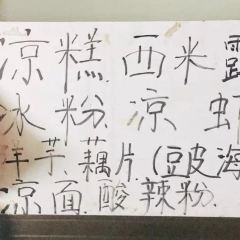 凉糕 西米露
冰粉 凉虾
洋芋.藕片.(豆皮海
凉面.酸辣粉.